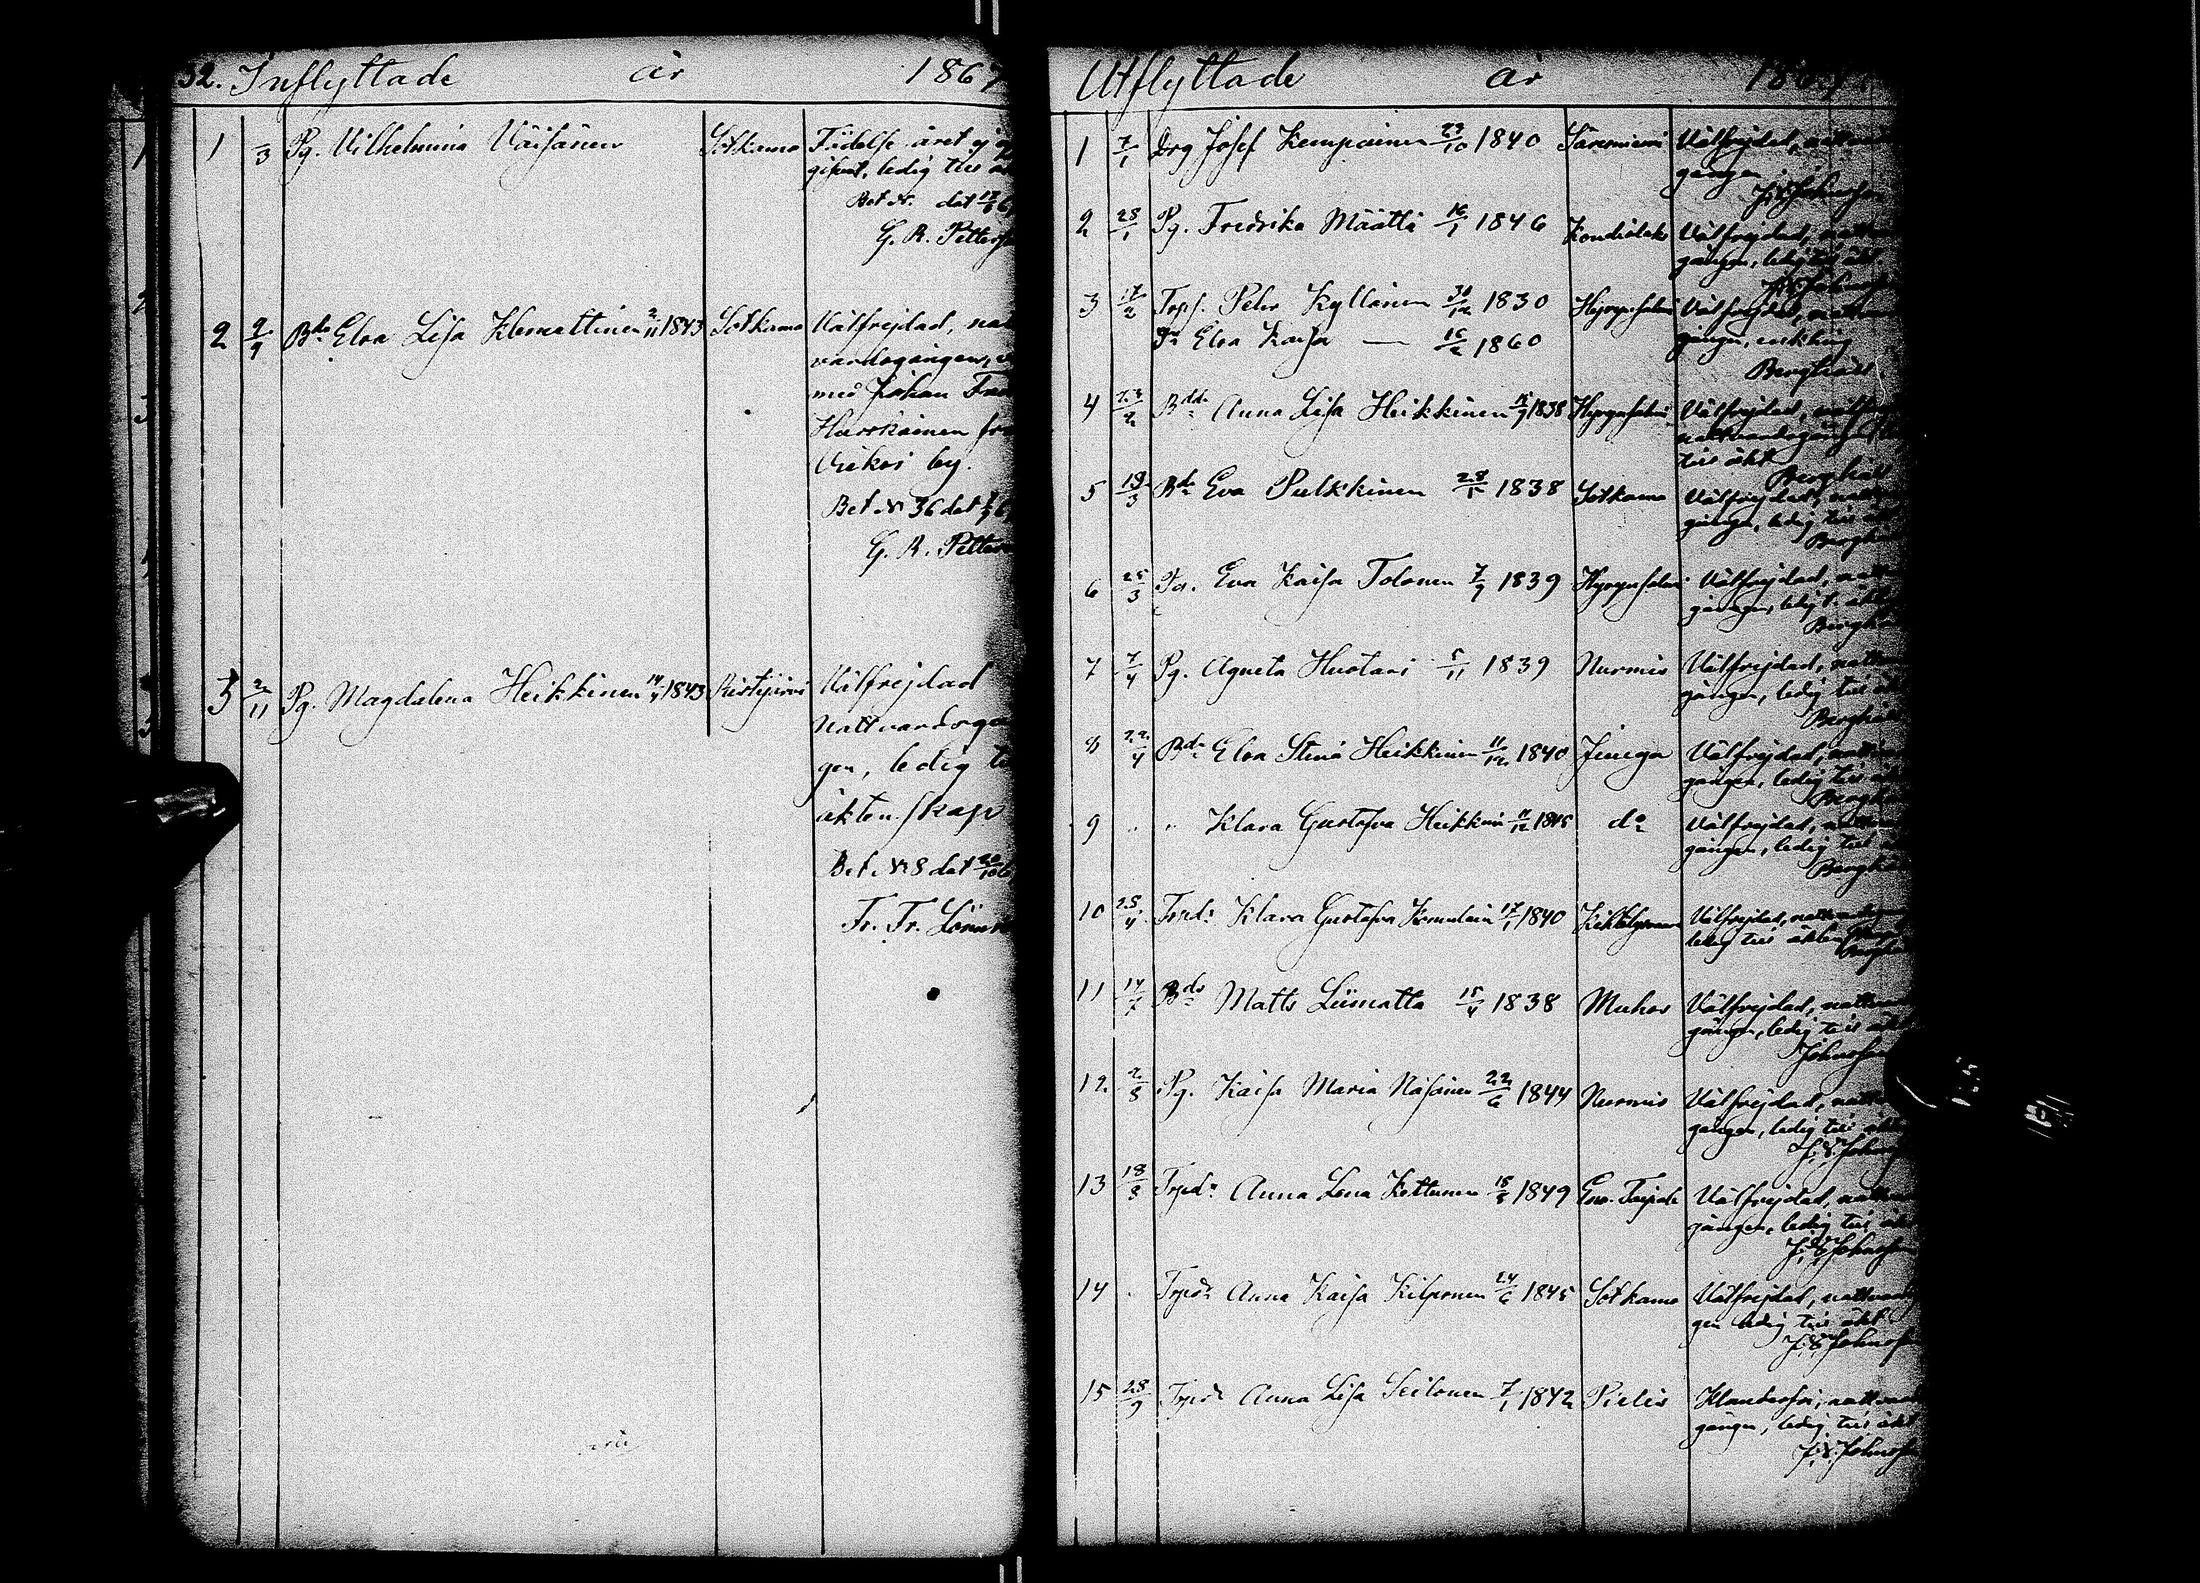 32. Inflyttade år 1867
1 /3 Pg. Vilhelmina Väisänen Sotkamo Födelse året ej
gifvet, ledig till
Bet N. dat 12/3 6
G. R. Petters
2 2/9 Bd. Elsa Lisa Klemettinen 2/11 1843 Sotkamo Välfrejdad, nat
vardsgången,
med Johan
Harskainen
Vieksi by.
Bet N 36 dat
G. R. Petters
3 2/11 Pg. Magdalena Heikkinen 14/4 1843 Ristijärvi Välfrejdad
Nattvardsgån
gen, ledig t
äktenskap
Bet N 8 dat 20/10 6
Fr. Tr. Lönn
Utflyttade år 1867
1 7/1 Drg Josef Kempainen 23/10 1840 Säresniemi Välfrejdad, nattv
gången
J. E. Johnsson
2 28/1 Pg. Fredrika Määttä 16/1 1846 Kondiolaks Välfrejdad, nattv
gången, ledig till äkt
3 17/2 Trpf. Peter Kyllönen 30/12 1830 Hyrynsalmi Välfrejdad, nattv
Dr Elsa Kaisa — 16/2 1860 gången, enkling
Berghäll
4 23/2 Bdd. Anna Lisa Heikkinen 15/9 1838 Hyrynsalmi Välfrejdad,
nattvardsgången
till äkt
Berghäll
5 19/3 Bd. Eva Pulkkinen 28/5 1838 Sotkamo Välfrejdad, nattv
gången, ledig till äkt
Bergh
6 25/3 Eva Kaisa Tolonen 7/9 1839 Hyrynsalmi Välfrejdad, nattv
gången, ledig t. äkt
Bergh
7 7/4 Pg. Agneta Huotari 5/11 1839 Nurmis Välfrejdad, nattv
gången, ledig till äkt
Berghäll
8 22/4 Bd. Elsa Stina Heikkinen 11/12 1840 Jeunga Välfrejdad, nattv
gången, ledig till äkt
Bergh
9 " " Klara Gustafva Heikkinen 11/12 1845 do Välfrejdad, nattv
gången, ledig till
Bergh
10 25/4 Trpd. Klara Gustafva Komulain 17/1 1840 Välfrejdad, nattvards
ledig till äkten
Bergh
11 14/7 Bds Matts Liimatta 15/4 1838 Muhos Välfrejdad, nattv
gången, ledig till äkt
Johnsson
12 2/8 Pg. Kaisa Maria Näsänen 22/6 1844 Nurmis Välfrejdad, nattv
gången, ledig till äkt
J. E. Johnss
13 18/8 Trpd. Anna Lena Kettunen 15/5 1849 Eno Välfrejdad, nattv
gången, ledig till äkt
J. E. Johnsson
14 " Trpd. Anna Kaisa Kilponen 24/6 1845 Sotkamo Välfrejdad, nattvards
gen ledig till äkt
J. E. Johnsson
15 28/9 Trpd. Anna Lisa Seilonen 7/1 1842 Pielis Klanderfri, nattvards
gången, ledig till äkt
J. E. Johnsson